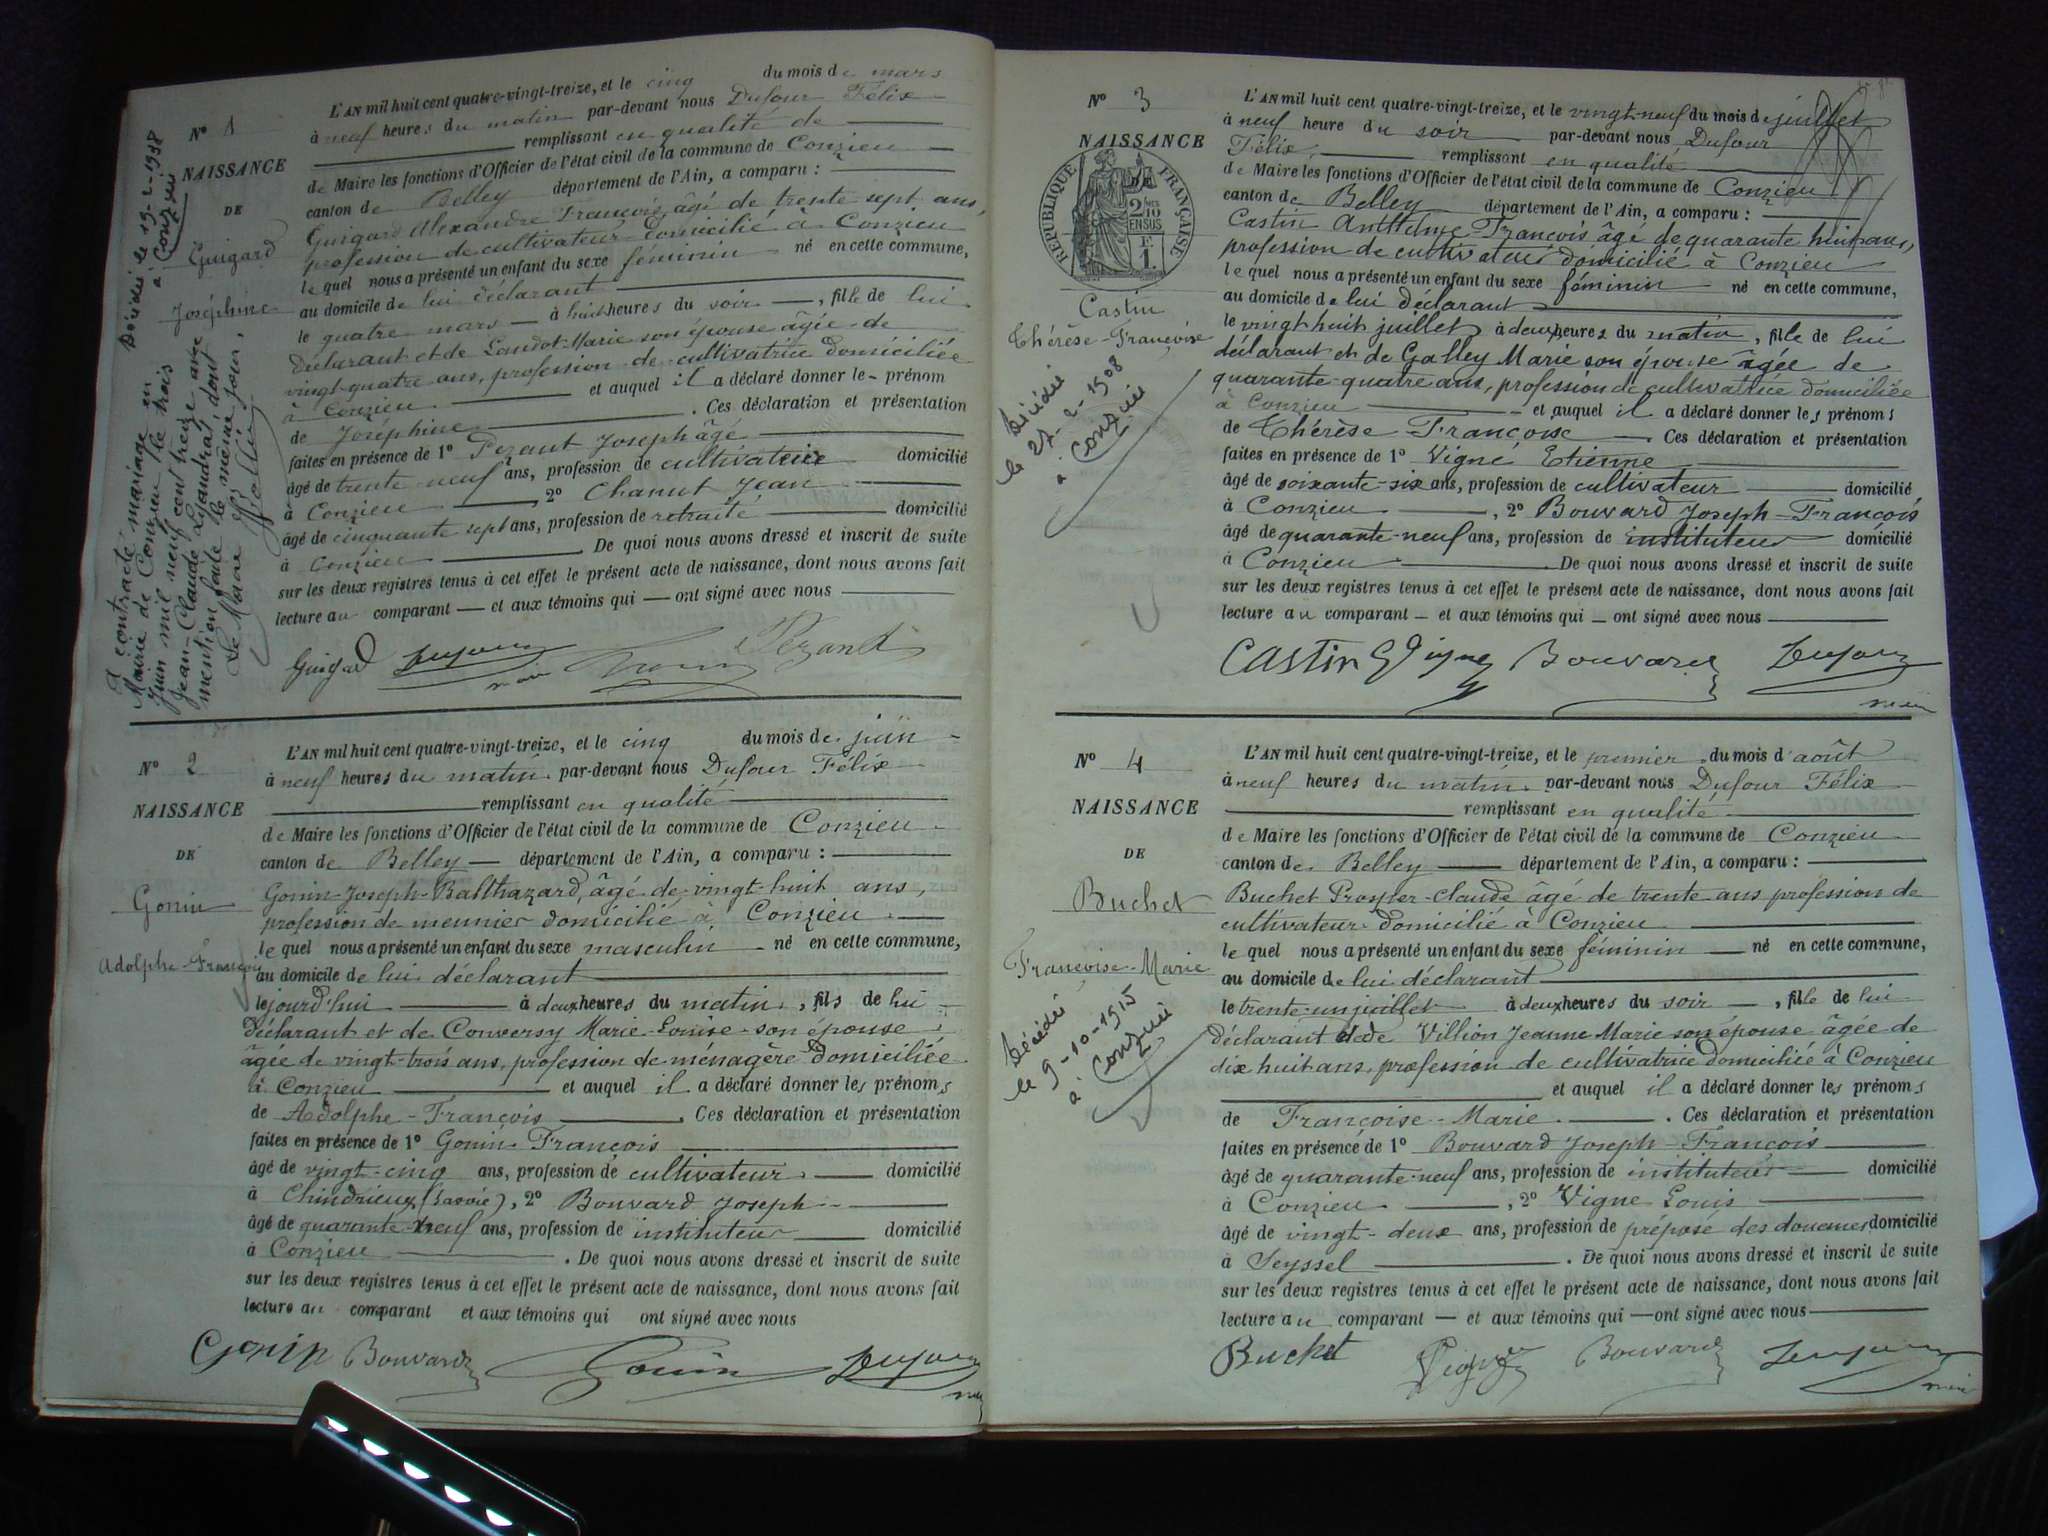 Nº 1
NAISSANCE
DE
Guigard
Joséphine
Décédée le 19-2-1958
à Conzieu
A contracté mariage en
Mairie de Conzieu le trois
Juin mil neuf cent treize avec
Jean-Claude dont
mention faite le même jour.
Le Maire
L'AN mil huit cent quatre-vingt-treize, et le cinq du mois de mars
à neuf heures du matin par-devant nous Dufour Félix
remplissant en qualité de
de Maire les fonctions d'Officier de l'état civil de la commune de Conzieu
canton de Belley département de l'Ain, a comparu :
Guigard Alexandre François, âgé de trente sept ans,
profession de cultivateur domicilié à Conzieu
lequel nous a présenté un enfant du sexe féminin né en cette commune,
au domicile de lui déclarant
le quatre mars à huit heures du soir, fille de lui
déclarant et de Landot Marie son épouse âgée de
vingt-quatre ans, profession de cultivatrice domiciliée
à Conzieu et auquel il a déclaré donner le prénom
de Joséphine. Ces déclaration et présentation
faites en présence de 1º Pezant Joseph âgé
âgé de trente-neuf ans, profession de cultivateur domicilié
à Conzieu, 2º Chanut Jean
âgé de cinquante sept ans, profession de retraité domicilié
à Conzieu. De quoi nous avons dressé et inscrit de suite
sur les deux registres tenus à cet effet le présent acte de naissance, dont nous avons fait
lecture au comparant — et aux témoins qui — ont signé avec nous
Guigard Dufour Pezant
Nº 2
NAISSANCE
DE
Gonin
Adolphe-François
L'AN mil huit cent quatre-vingt-treize, et le cinq du mois de juin
à neuf heures du matin par-devant nous Dufour Félix
remplissant en qualité
de Maire les fonctions d'Officier de l'état civil de la commune de Conzieu
canton de Belley département de l'Ain, a comparu :
Gonin Joseph-Balthazard, âgé de vingt-huit ans,
profession de meunier domicilié à Conzieu
lequel nous a présenté un enfant du sexe masculin né en cette commune,
au domicile de lui déclarant
le jourd'hui à deux heures du matin, fils de lui
déclarant et de Conversy Marie-Louise son épouse
âgée de vingt-trois ans, profession de ménagère domiciliée
à Conzieu et auquel il a déclaré donner les prénoms
de Adolphe-François. Ces déclaration et présentation
faites en présence de 1º Gonin François
âgé de vingt-cinq ans, profession de cultivateur domicilié
à Chindrieux (Savoie), 2º Bouvard Joseph
âgé de quarante-neuf ans, profession de instituteur domicilié
à Conzieu. De quoi nous avons dressé et inscrit de suite
sur les deux registres tenus à cet effet le présent acte de naissance, dont nous avons fait
lecture au comparant et aux témoins qui ont signé avec nous
Gonin Bouvard Gonin Dufour
Nº 3
NAISSANCE
DE
REPUBLIQUE FRANÇAISE
2/10 EN SUS
F. 1.
Castin
Thérèse-Françoise
Décédée
le 27-2-1908
à Conzieu
L'AN mil huit cent quatre-vingt-treize, et le vingt-neuf du mois de juillet
à neuf heure du soir par-devant nous Dufour
Félix, remplissant en qualité
de Maire les fonctions d'Officier de l'état civil de la commune de Conzieu
canton de Belley département de l'Ain, a comparu :
Castin Anthelme François âgé de quarante huit ans,
profession de cultivateur domicilié à Conzieu
lequel nous a présenté un enfant du sexe féminin né en cette commune,
au domicile de lui déclarant
le vingt huit juillet à deux heures du matin, fille de lui
déclarant et de Galley Marie son épouse âgée de
quarante-quatre ans, profession de cultivatrice domiciliée
à Conzieu et auquel il a déclaré donner les prénoms
de Thérèse Françoise. Ces déclaration et présentation
faites en présence de 1º Vigne Etienne
âgé de soixante-six ans, profession de cultivateur domicilié
à Conzieu, 2º Bouvard Joseph-François
âgé de quarante-neuf ans, profession de instituteur domicilié
à Conzieu. De quoi nous avons dressé et inscrit de suite
sur les deux registres tenus à cet effet le présent acte de naissance, dont nous avons fait
lecture au comparant — et aux témoins qui — ont signé avec nous
CASTIN Vigne Bouvard Dufour
Nº 4
NAISSANCE
DE
Buchet
Françoise-Marie
Décédée
le 9-10-1915
à Conzieu
L'AN mil huit cent quatre-vingt-treize, et le premier du mois d'août
à neuf heures du matin par-devant nous Dufour Félix
remplissant en qualité
de Maire les fonctions d'Officier de l'état civil de la commune de Conzieu
canton de Belley département de l'Ain, a comparu :
Buchet Claude âgé de trente ans profession de
cultivateur domicilié à Conzieu
lequel nous a présenté un enfant du sexe féminin né en cette commune,
au domicile de lui déclarant
le trente-un juillet à deux heures du soir, fille de lui
déclarant et de Villion Jeanne Marie son épouse âgée de
dix huit ans, profession de cultivatrice domiciliée à Conzieu
et auquel il a déclaré donner les prénoms
de Françoise-Marie. Ces déclaration et présentation
faites en présence de 1º Bouvard Joseph-François
âgé de quarante-neuf ans, profession de instituteur domicilié
à Conzieu, 2º Vigne Louis
âgé de vingt-deux ans, profession de préposé des douanes domicilié
à Seyssel. De quoi nous avons dressé et inscrit de suite
sur les deux registres tenus à cet effet le présent acte de naissance, dont nous avons fait
lecture au comparant — et aux témoins qui — ont signé avec nous
Buchet Vigne Bouvard Dufour